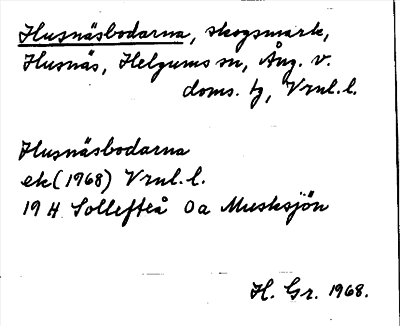 Husnäsbodarna, skogsmark,
Husnäs, Helgums sn, Ång. v.
doms. tg, Vrnl. l.
Husnäsbodarna
ek (1968) Vrnl. l.
19 H Sollefteå 0a Musksjön
H. Gr. 1968.